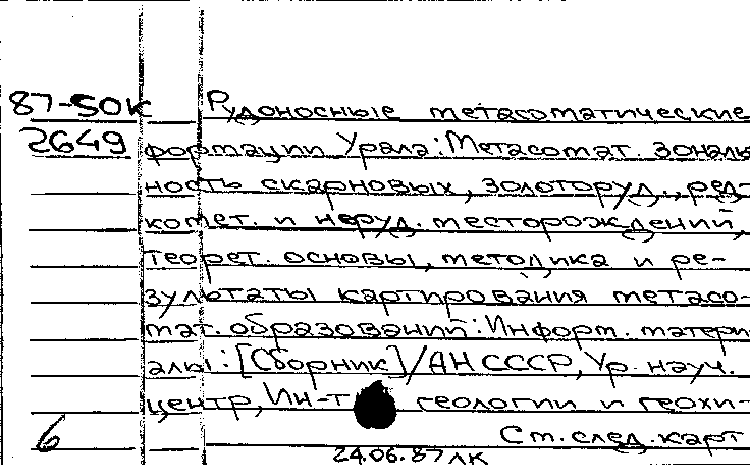 87-50К Рудоносные метасоматические
2649 формации Урала: Метасомат. зональ
ность скарновых, золоторуд., ред-
комет. и неруд. месторождений,
теорет. основы, методика и ре-
зультаты картирования метасо-
мат. образований: Информ. матери
алы: [Сборник]/АН СССР, Ур. науч.
центр, Ин-т геологии и геохи-
6 См. след. карт
24.06.87 ЛК